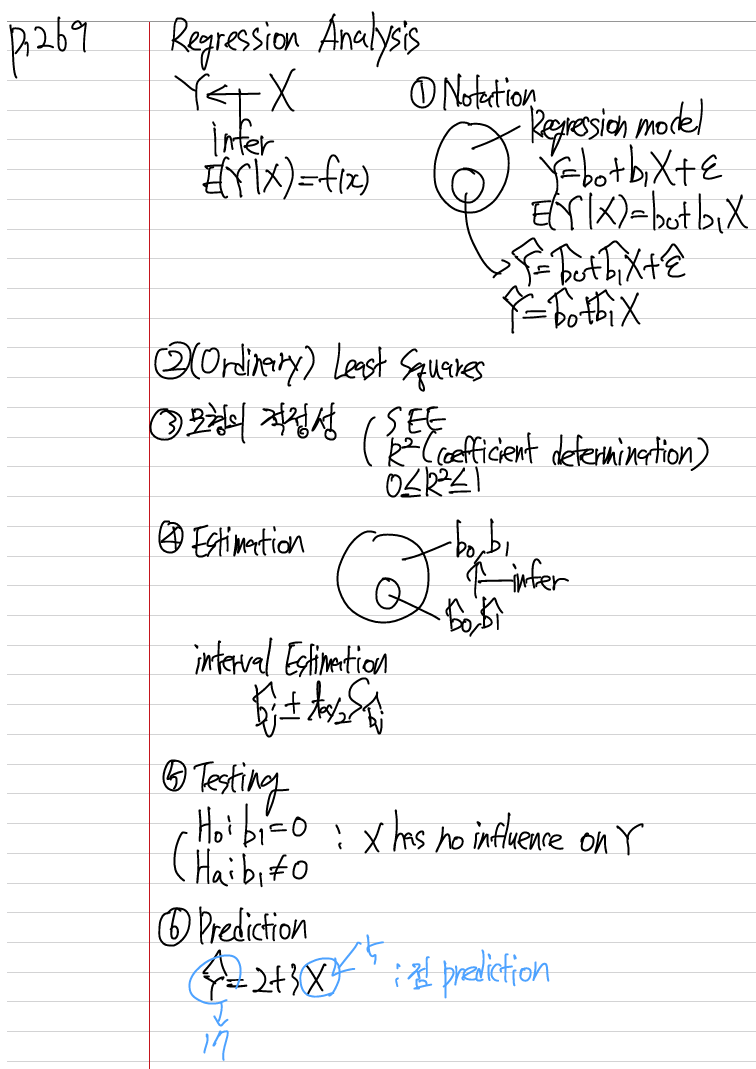 p.269
Regression Analysis
Y ← X
infer
E(Y|X)=f(x)
① Notation
Regression model
Y=b₀+b₁X+ε
E(Y|X)=b₀+b₁X
Ŷ=b̂₀+b̂₁X+ε̂
Ŷ=b̂₀+b̂₁X
②(Ordinary) Least Squares
③ 모형의 적정성 ( SEE
R²(coefficient determination)
0≤R²≤1
④ Estimation
b₀,b₁
infer
b̂₀,b̂₁
interval Estimation
b̂ⱼ ± t_α/2 S_b̂ⱼ
⑤ Testing
H₀: b₁=0 : X has no influence on Y
Ha: b₁≠0
⑥ Prediction
Ŷ=2+3X ← 5 : 점 prediction
↓
17